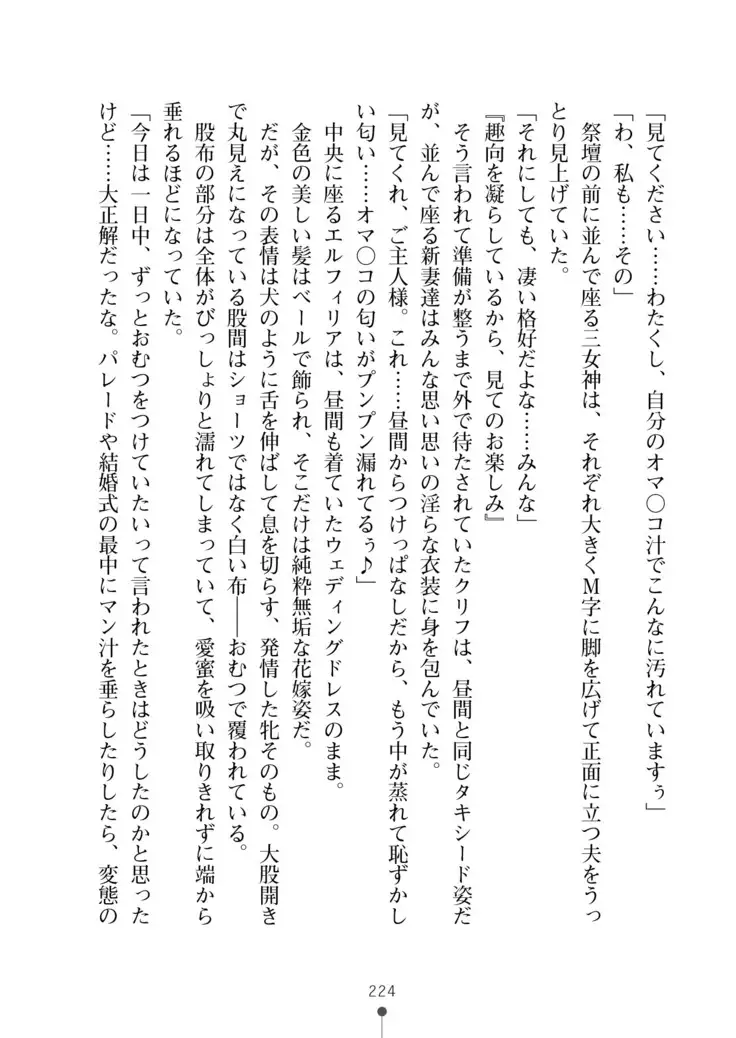 「見てください……わたくし、自分のオマ〇コ汁でこんなに汚れていますぅ」
「わ、私も……その」
　祭壇の前に並んで座る三女神は、それぞれ大きくＭ字に脚を広げて正面に立つ夫をうっ
とり見上げていた。
「それにしても、凄い格好だよな……みんな」
『趣向を凝らしているから、見てのお楽しみ』
　そう言われて準備が整うまで外で待たされていたクリフは、昼間と同じタキシード姿だ
が、並んで座る新妻達はみんな思い思いの淫らな衣装に身を包んでいた。
「見てくれ、ご主人様。これ……昼間からつけっぱなしだから、もう中が蒸れて恥ずかし
い匂い……オマ〇コの匂いがプンプン漏れてるぅ♪」
　中央に座るエルフィリアは、昼間も着ていたウェディングドレスのまま。
　金色の美しい髪はベールで飾られ、そこだけは純粋無垢な花嫁姿だ。
　だが、その表情は犬のように舌を伸ばして息を切らす、発情した牝そのもの。大股開き
で丸見えになっている股間はショーツではなく白い布――おむつで覆われている。
　股布の部分は全体がびっしょりと濡れてしまっていて、愛蜜を吸い取りきれずに端から
垂れるほどになっていた。
「今日は一日中、ずっとおむつをつけていたいって言われたときはどうしたのかと思った
けど……大正解だったな。パレードや結婚式の最中にマン汁を垂らしたりしたら、変態の
224